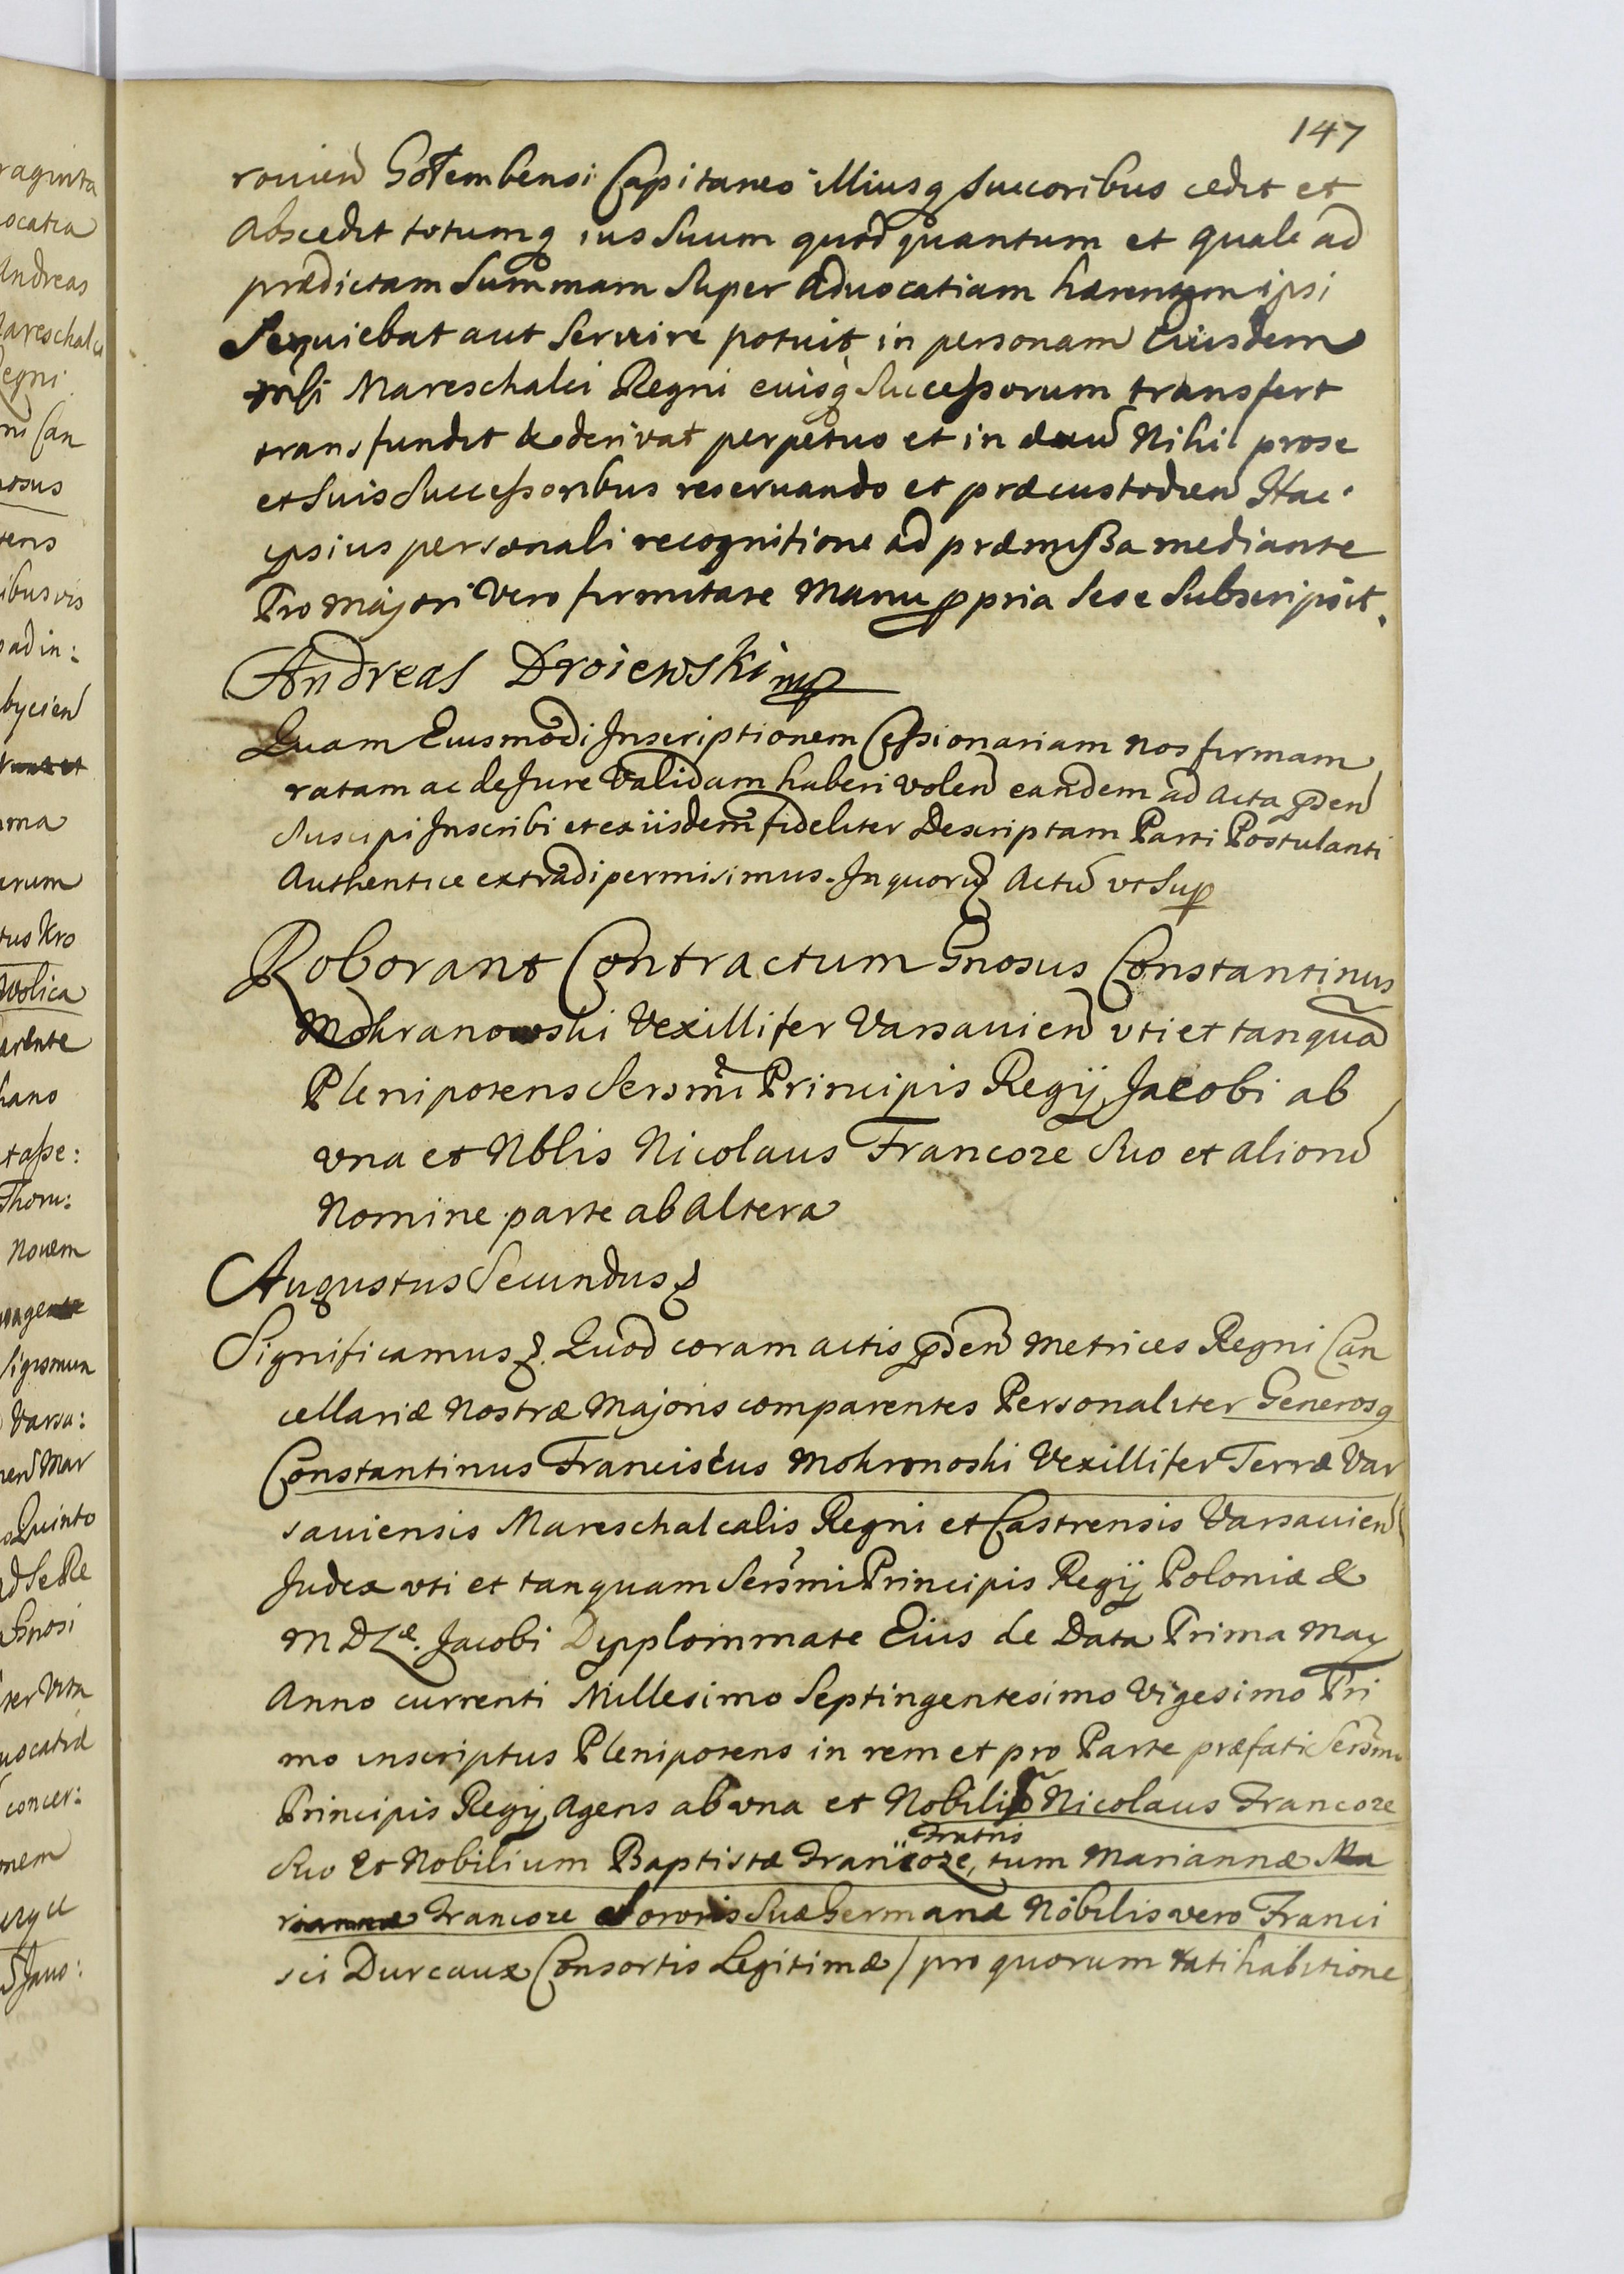 147
rouien Gotembensi Capitaneo illiusq succoribus cedit et
Abscedit totumq ius suum quod quantum et quale ad
prædictam summam super Aduocatiam hærentem ipsi
seruiebat aut seruire potuit in personam Eiusdem
Mfci Mareschalci Regni euisq Successorum transfert
transfundit & deriuat perpetuo et in æuu Nihil prose
et suis Successoribus reseruando et præcustodien Hac
ipsius personali recognitione ad præmissa mediante
Pro majori vero firmitate Manu ppria sese subscripsit.
Andreas Droiewski mp
Quam Eiusmodi Inscriptionem Cessionariam nos firmam
ratam ac de Jure validam haberi volen eandem ad Acta pden
suscipi Inscribi et ex iisdem fideliter Descriptam Parti Postulanti
Authentice extradi permisimus. In quoru Actu vt sup
Roborant Contractum Gnosus Constantinus
Mokranowski Vexillifer Varsauien vti et tanqua
Plenipotens sersmi Principis Regij Jacobi ab
vna et Nblis Nicolaus Francoze suo et alioru
Nomine parte ab altera
Augustus Secundus
Significamus Quod coram actis pden Metrices Regni Can
cellariæ Nostræ Majoris comparentes Personaliter Generosq
Constantinus Franciscus Mokronoski Vexillifer Terræ Var
sauiensis Mareschalcalis Regni et Castrensis Varsauien
Judex vti et tanquam sersmi Principis Regij Poloniæ &
M D L æ. Jacobi Dypplommate Eius de Data Prima May
Anno currenti Millesimo Septingentesimo Vigesimo Pri
mo inscriptus Plenipotens in rem et pro Parte præfati sersmi
Principis Regij Agens ab vna et Nobilis Nicolaus Francoze
Fratris
suo et Nobilium Baptistæ Francoze, tum Mariannæ Ma
riannæ Francoze Sororis suæ Germanæ Nobilis vero Franci
sci Dureaux Consortis Legitimæ / pro quorum ratihabitione